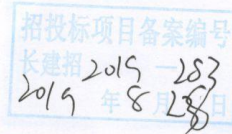 招投标项目备案编号
长建招 2019 — 283
2019 年 8 月 日